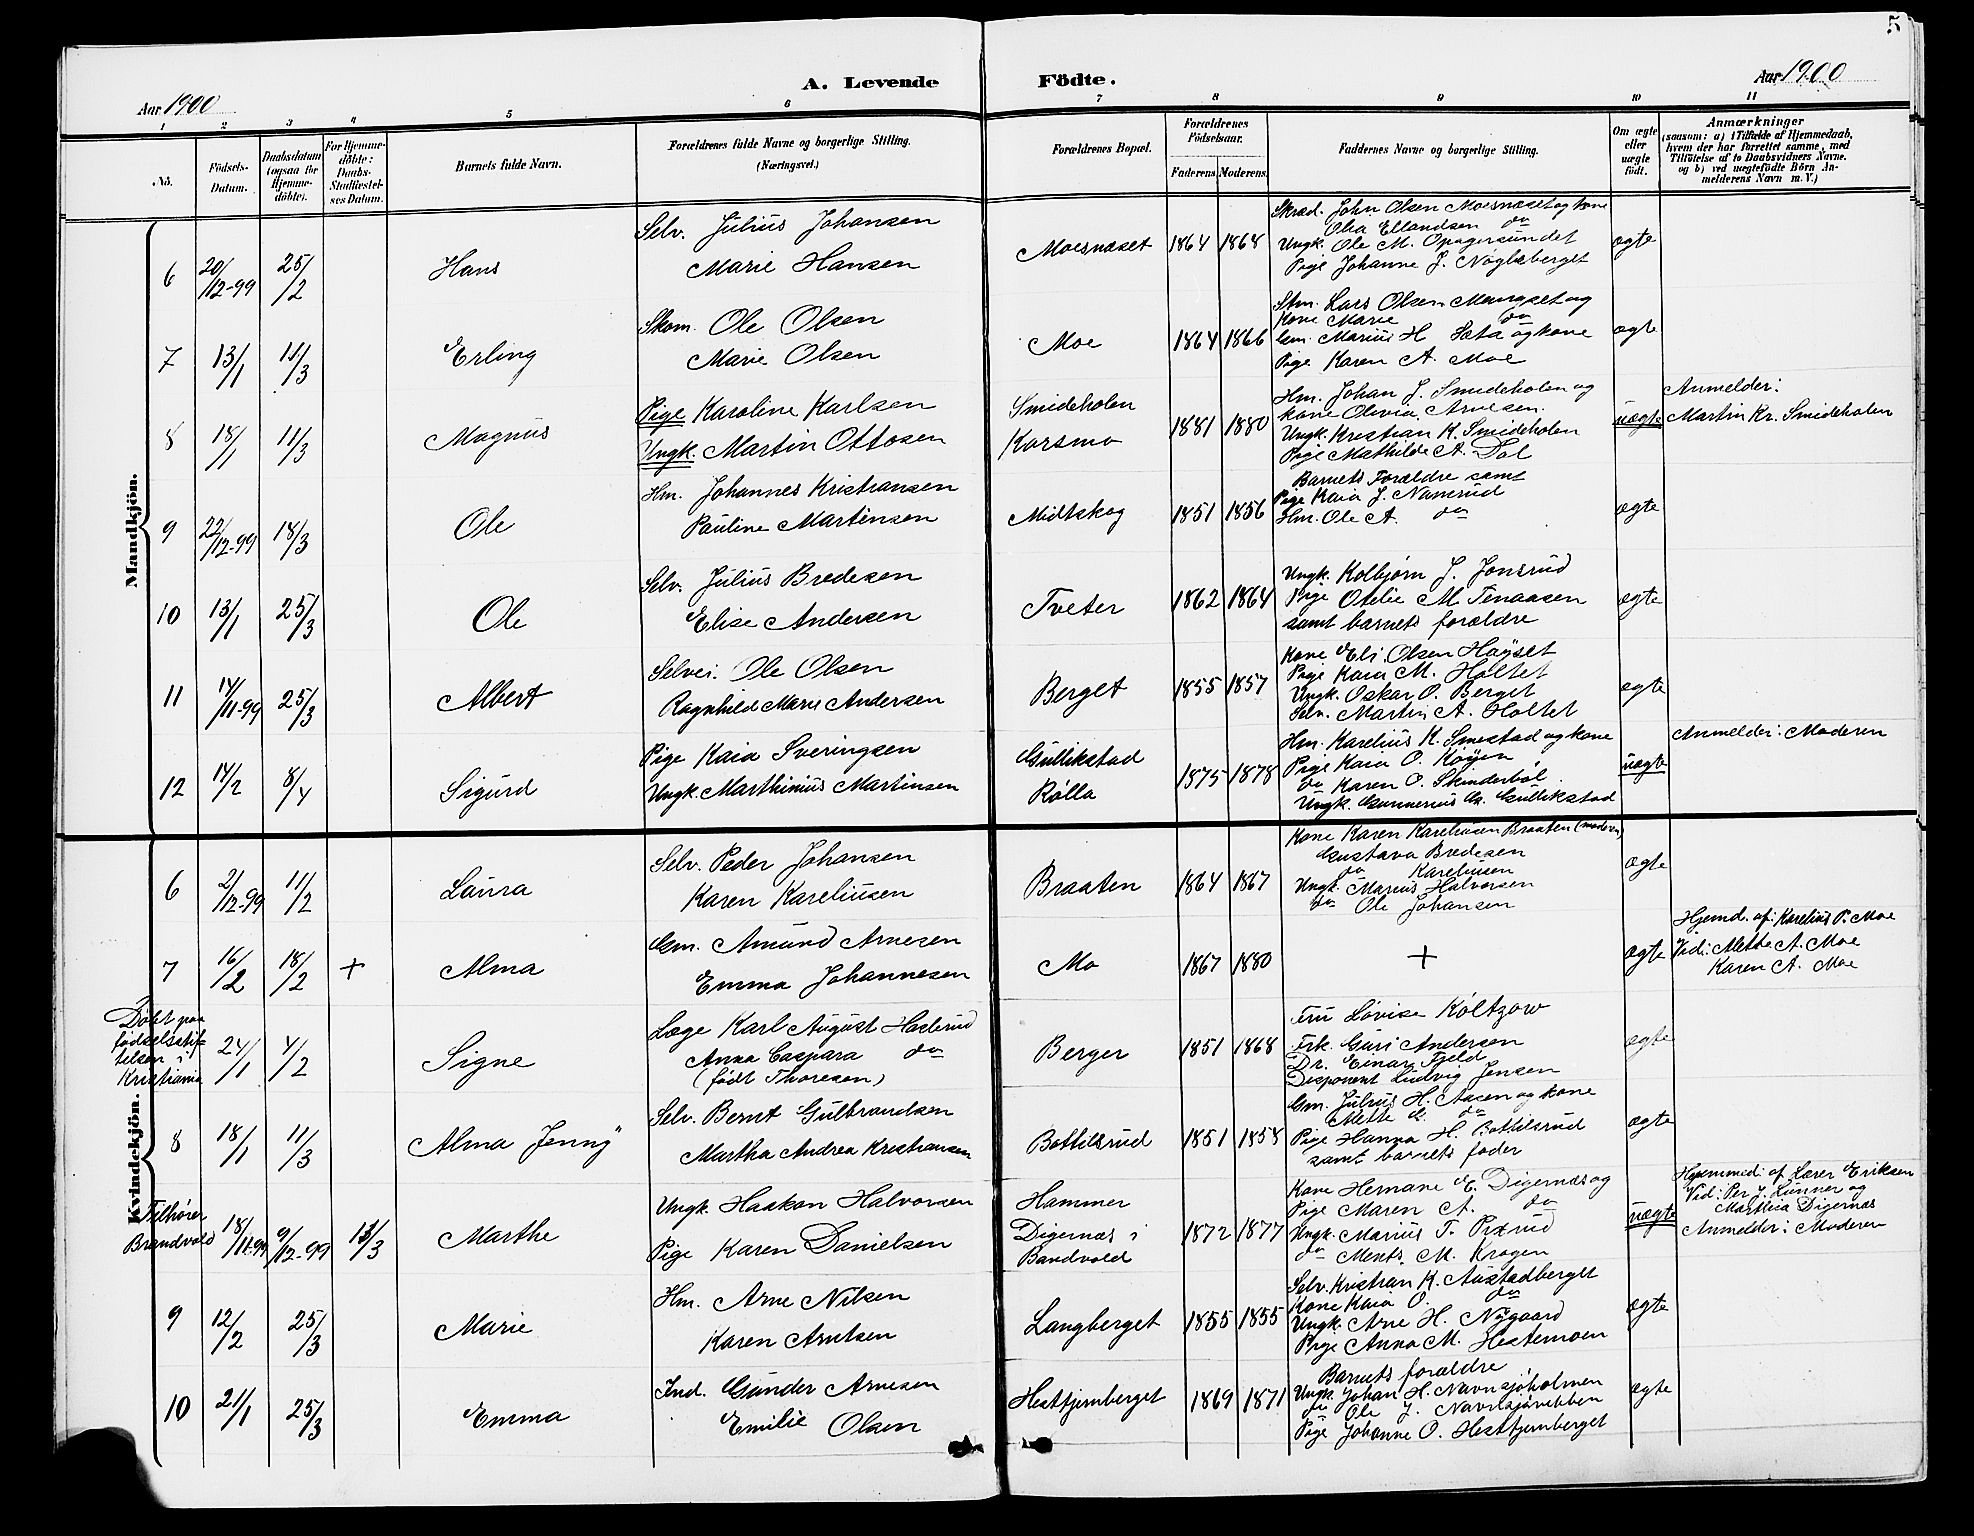 5
A. Levende Födte.
Aar 1900
Aar 1900
1 2 3 4 5 6 7 8 9 10 11
No.
Födsels-Datum.
Daabsdatum (ogsaa for Hjemmedöbte).
For Hjemmedöbte: Daabs-Stadfæstelses Datum.
Barnets fulde Navn.
Forældrenes fulde Navne og borgerlige Stilling.
(Næringsvei.)
Forældrenes Bopæl.
Forældrenes Födselsaar.
Faderens. Moderens.
Faddernes Navne og borgerlige Stilling.
Om ægte eller uægte födt.
Anmærkninger
(saasom: a) i Tilfælde af Hjemmedaab,
hvem der har forrettet samme, med
Tilföielse af to Daabsvidners Navne.
og b) ved uægtefödte Börn An-
melderens Navn m. V.)
Mandkjön.
6 20/12-99 25/2 Hans
Selv. Julius Johansen
Marie Hansen
Moesnæset 1864 1868
Skræd. John Olsen Moesnæset og kone
Olea Ellandsen do
Ungk. Ole M. Opagersundet
Pige Johanne J. Nøgleberget
ægte
7 13/1 11/3 Erling
Skom. Ole Olsen
Marie Olsen
Moe 1864 1866
Lars Olsen Mangset og
Kone Marie do
Gm. Marius H Sæta og kone
Pige Karen A. Moe
ægte
8 18/1 11/3 Magnus
Pige Karoline Karlsen
Ungk. Martin Ottosen
Smideholen
Korsmo
1881 1880
Hm. Johan J. Smideholen og
kone Olivia Arnesen.
Ungk. Kristian K. Smideholen
Pige Mathilde A. Dal
uægte
Anmelder:
Martin Kr. Smideholen
9 22/12-99 18/3 Ole
Hm. Johannes Kristiansen
Pauline Martinsen
Midtskog 1851 1856
Barnets Forældre samt
Pige Kaia J. Namsrud
Hm. Ole A. do
ægte
10 13/1 25/3 Ole
Selv. Julius Bredesen
Elise Andersen
Tveter 1862 1864
Ungk. Kolbjørn J. Jonsrud
Pige Otelie M. Tenaasen
samt barnets forældre
ægte
11 14/11-99 25/3 Albert
Selvei. Ole Olsen
Ragnhild Marie Andersen
Berget 1855 1857
Kone Eli Olsen Høyset
Pige Kaia M. Holtet
Ungk. Oskar O. Berget
Selv. Martin A. Holtet
ægte
12 14/2 8/4 Sigurd
Pige Kaia Sveringsen
Ungk. Marthinius Martinsen
Gullikstad
Rølla
1875 1878
Hm. Karelius K. Smestad og kone
Pige Kaia O. Køyen
do Karen O. Skinderbøl.
Ungk. Gunnerius G. Gullikstad
uægte
Anmelder: Moderen
Kvindekjön.
6 2/12-99 11/2 Laura
Selv. Peder Johansen
Karen Kareliusen
Braaten 1864 1867
Kone Karen Kareliusen Braaten (moderen)
Gustava Bredesen
do Kareliusen
Ungk. Marius Halvorsen
do Ole Johansen
ægte
7 16/2 18/2 + Alma
Gm. Amund Arnesen
Emma Johannesen
Mo 1867 1880
+
ægte
Hjemd. af: Karelius P. Moe
Vid: Mette A. Moe
Karen A. Moe
Døbt paa
fødselsstif-
telsen i
Kristiania
24/1 4/2 Signe
Læge Karl August Haslerud
Anna Caspara do
(født Thoresen)
Berger 1851 1868
Fru Lovise Koltzow
Frk. Guri Andersen
Dr. Einar Fjeld
Disponent Ludvig Jensen
ægte
8 18/1 11/3 Alma Jenny
Selv. Bernt Gulbrandsen
Martha Andrea Kristiansen
Bottilsrud 1851 1858
Gm. Julius H. Aasen og kone
Mette G. do
Pige Hanna H. Bottilsrud
samt barnets fader
ægte
Tilhører
Brandvold
18/11-99 9/12-99 11/3 Marthe
Ungk. Haakon Halvorsen
Pige Karen Danielsen
Hammer
Digernæs i
Bandvold
1872 1877
Kone Hernane E. Digernæs og
Pige Maren A. do
Ungk. Marius T. Pixrud
do Ments. M. Krogen
uægte
Hjemmed: af Lærer Eriksen
Vid: Per J. Lunner og
Marthea Digernæs
Anmelder: Moderen
9 12/2 25/3 Marie
Hm. Arne Nilsen
Karen Arntsen
Langberget 1855 1855
Selv. Kristian K. Austadberget
Kone Kaia O. do
Ungk. Arne H. Nygaard
Pige Anna M. Hestemoen
ægte
10 21/1 25/3 Emma
Ind. Gunder Arnesen
Emilie Olsen
Hestfjernberget 1869 1871
Barnets forældre
Ungk. Johan H. Navnsjøholmen
do Ole J. Navnsjøvibben
Pige Johanne O. Hestfjernberget
ægte